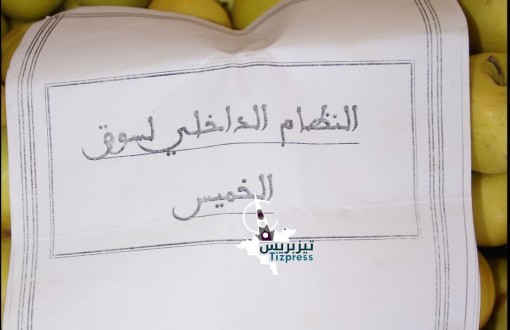 النظام الداخلي لسوق
الخميس
تيزبريس
Tizpress